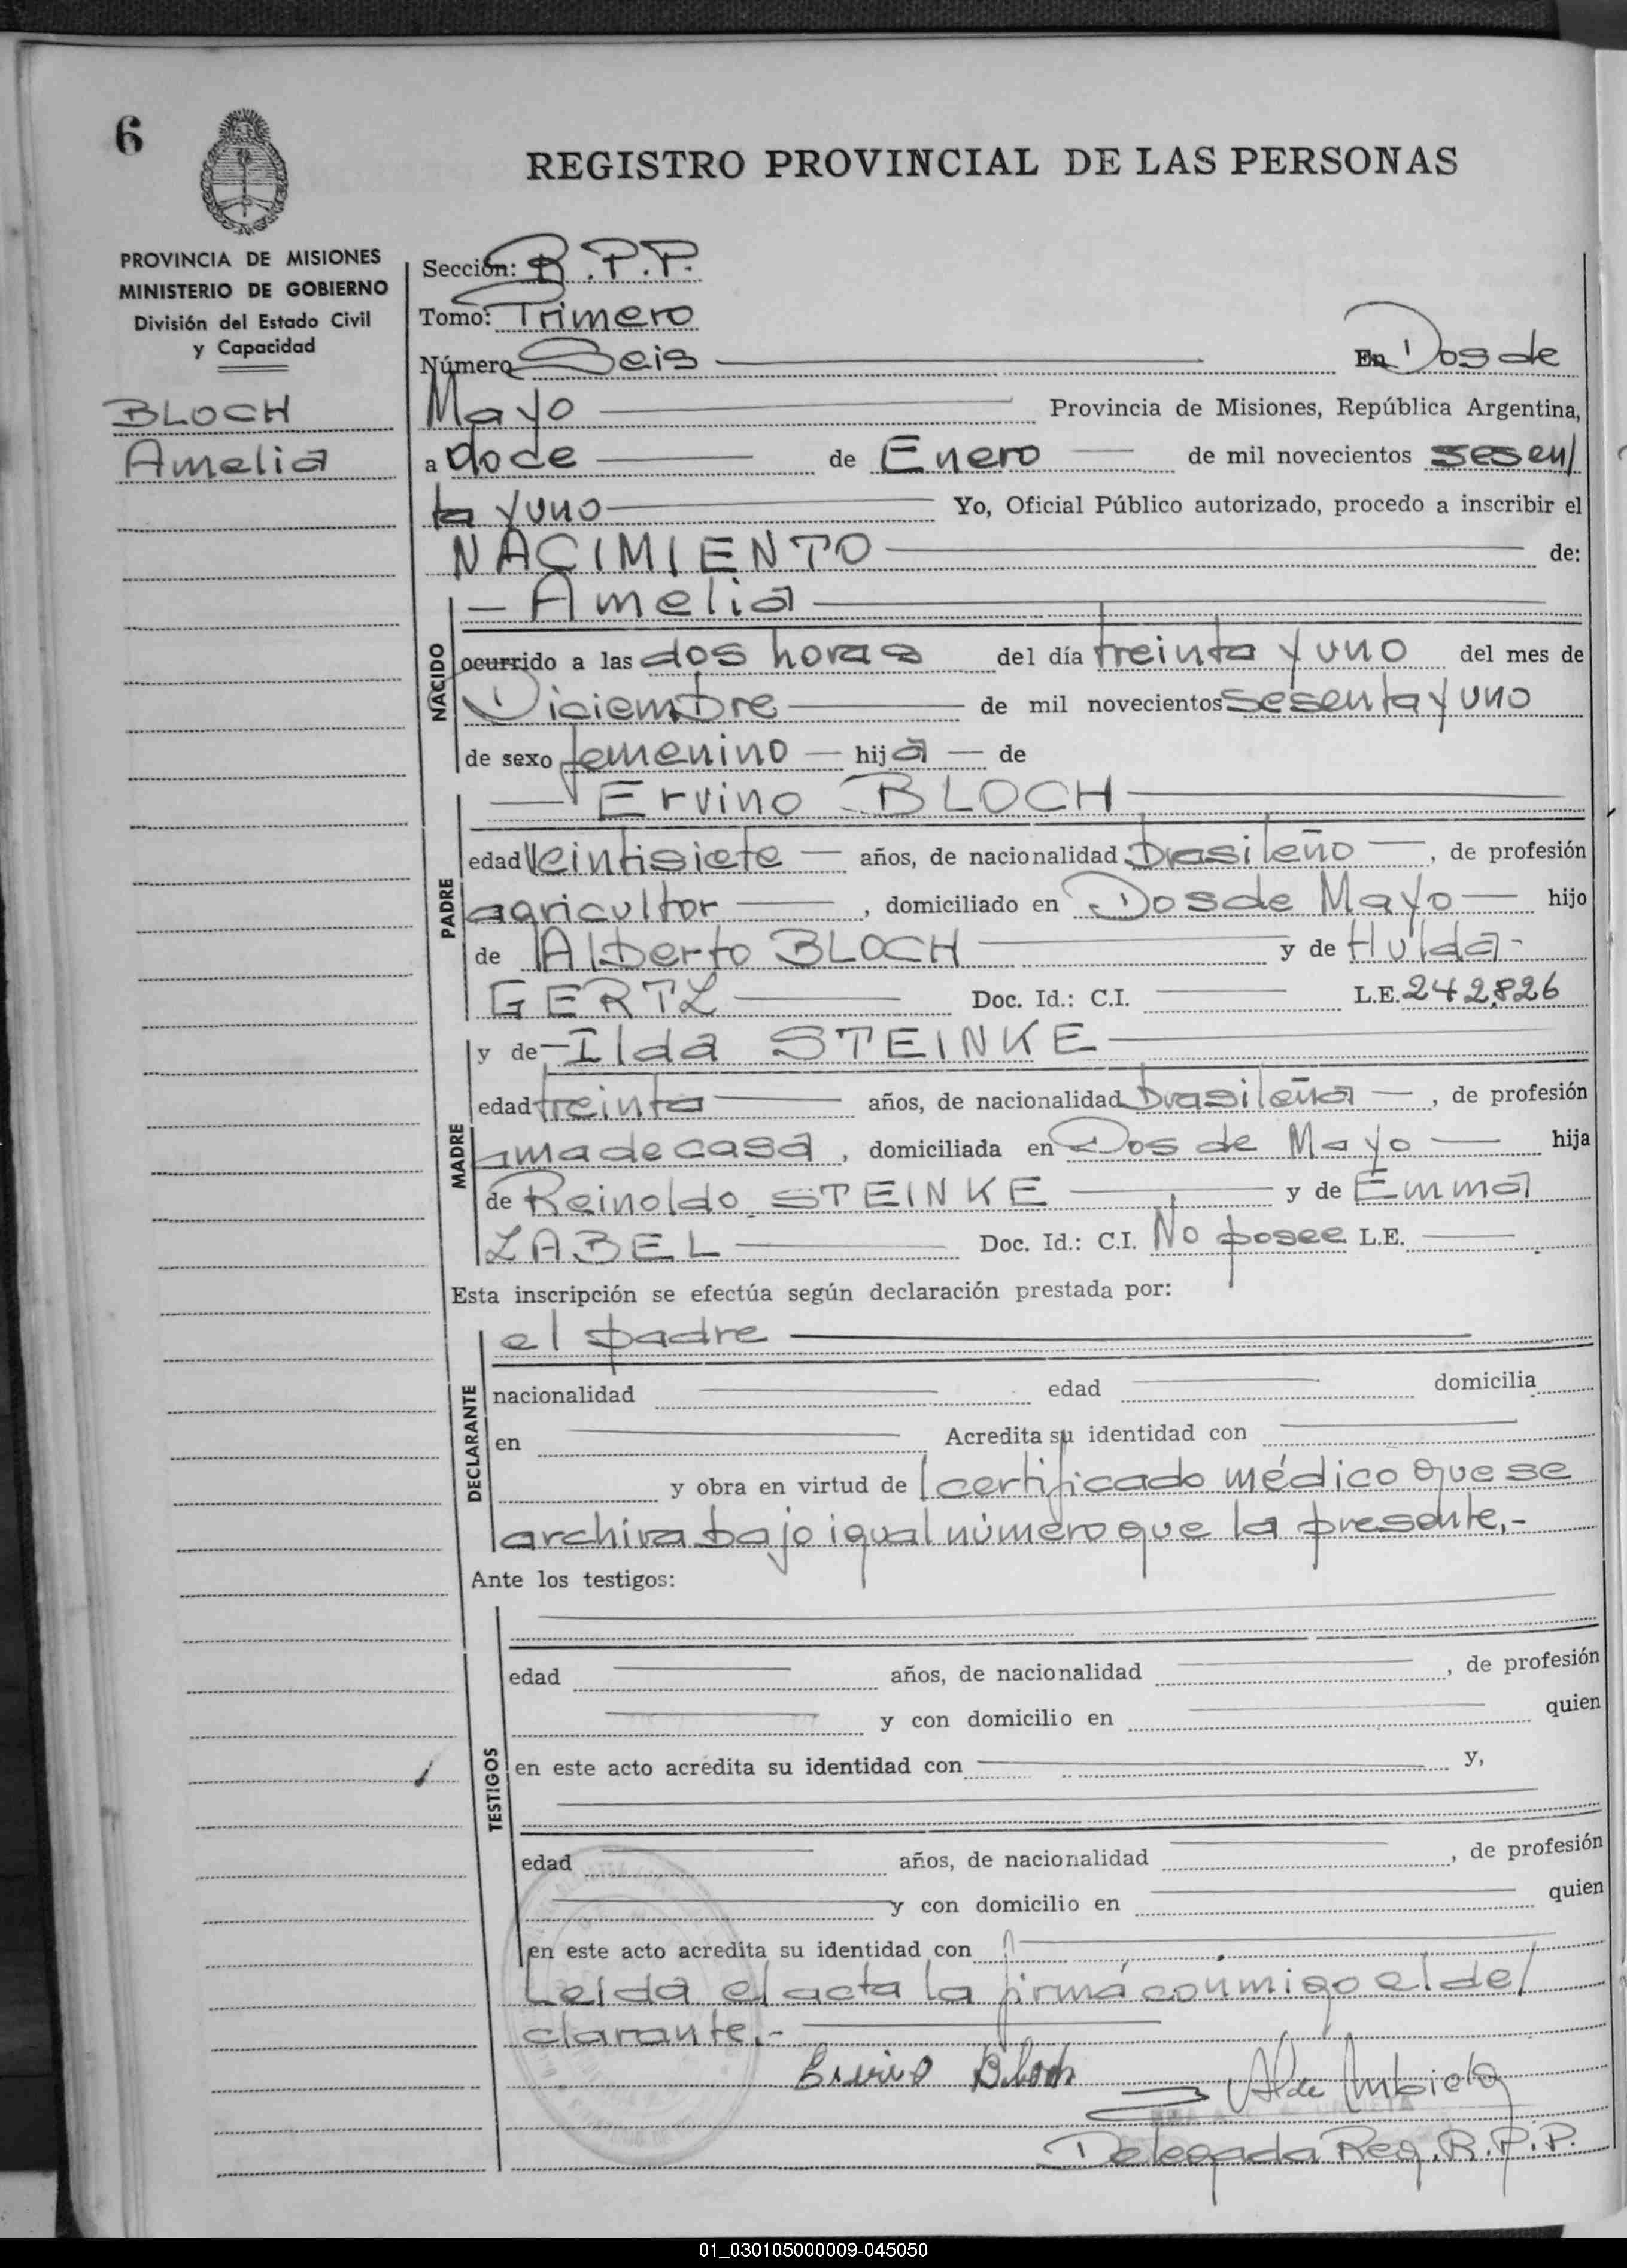 6
REGISTRO PROVINCIAL DE LAS PERSONAS
PROVINCIA DE MISIONES
MINISTERIO DE GOBIERNO
División del Estado Civil
y Capacidad
BLOCH
Amelia
Sección: R.P.P.
Tomo: Primero
Número Seis En Dos de
Mayo Provincia de Misiones, República Argentina,
a doce de Enero de mil novecientos sesen/
ta y uno Yo, Oficial Público autorizado, procedo a inscribir el
NACIMIENTO de:
NACIDO
Amelia
ocurrido a las dos horas del día treinta y uno del mes de
Diciembre de mil novecientos sesenta y uno
de sexo femenino hija de
PADRE
Ervino BLOCH
edad veintisiete años, de nacionalidad brasileño, de profesión
agricultor, domiciliado en Dos de Mayo hijo
de Alberto BLOCH y de Hulda-
GERTZ Doc. Id.: C.I. L.E. 242.826
MADRE
y de Ilda STEINKE
edad treinta años, de nacionalidad brasileña, de profesión
ama de casa, domiciliada en Dos de Mayo hija
de Reinoldo STEINKE y de Emma
ZABEL Doc. Id.: C.I. No posee L.E.
Esta inscripción se efectúa según declaración prestada por:
DECLARANTE
el padre
nacionalidad edad domicilia
en Acredita su identidad con
y obra en virtud de certificado médico que se
archiva bajo igual número que la presente.-
Ante los testigos:
TESTIGOS
edad años, de nacionalidad, de profesión
y con domicilio en quien
en este acto acredita su identidad con y,
edad años, de nacionalidad, de profesión
y con domicilio en quien
en este acto acredita su identidad con
Leída el acta la firmá conmigo el de/
clarante.-
Bloch
Delegada Reg. R.P.P.
01_030105000009-045050